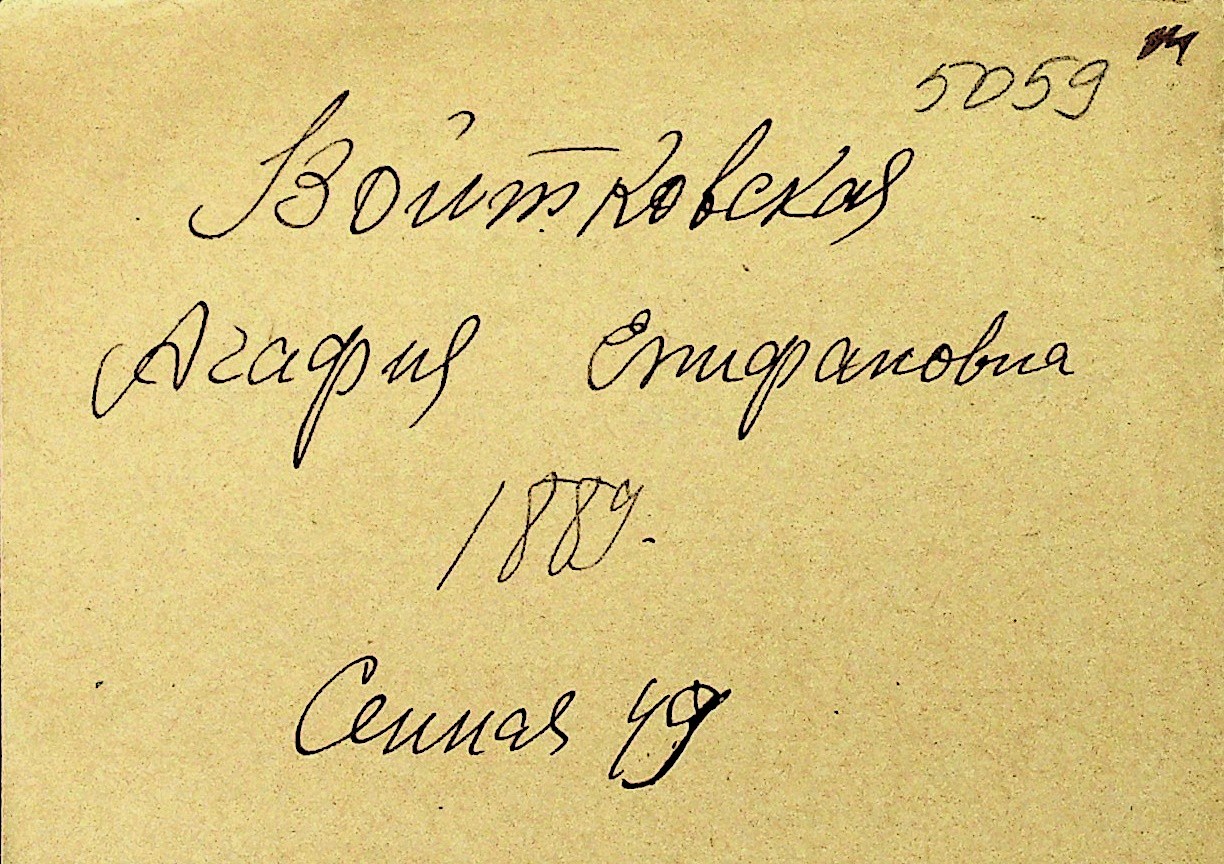 5059
Войтковская
Агафия Епифановна
1889.
Сенная 49